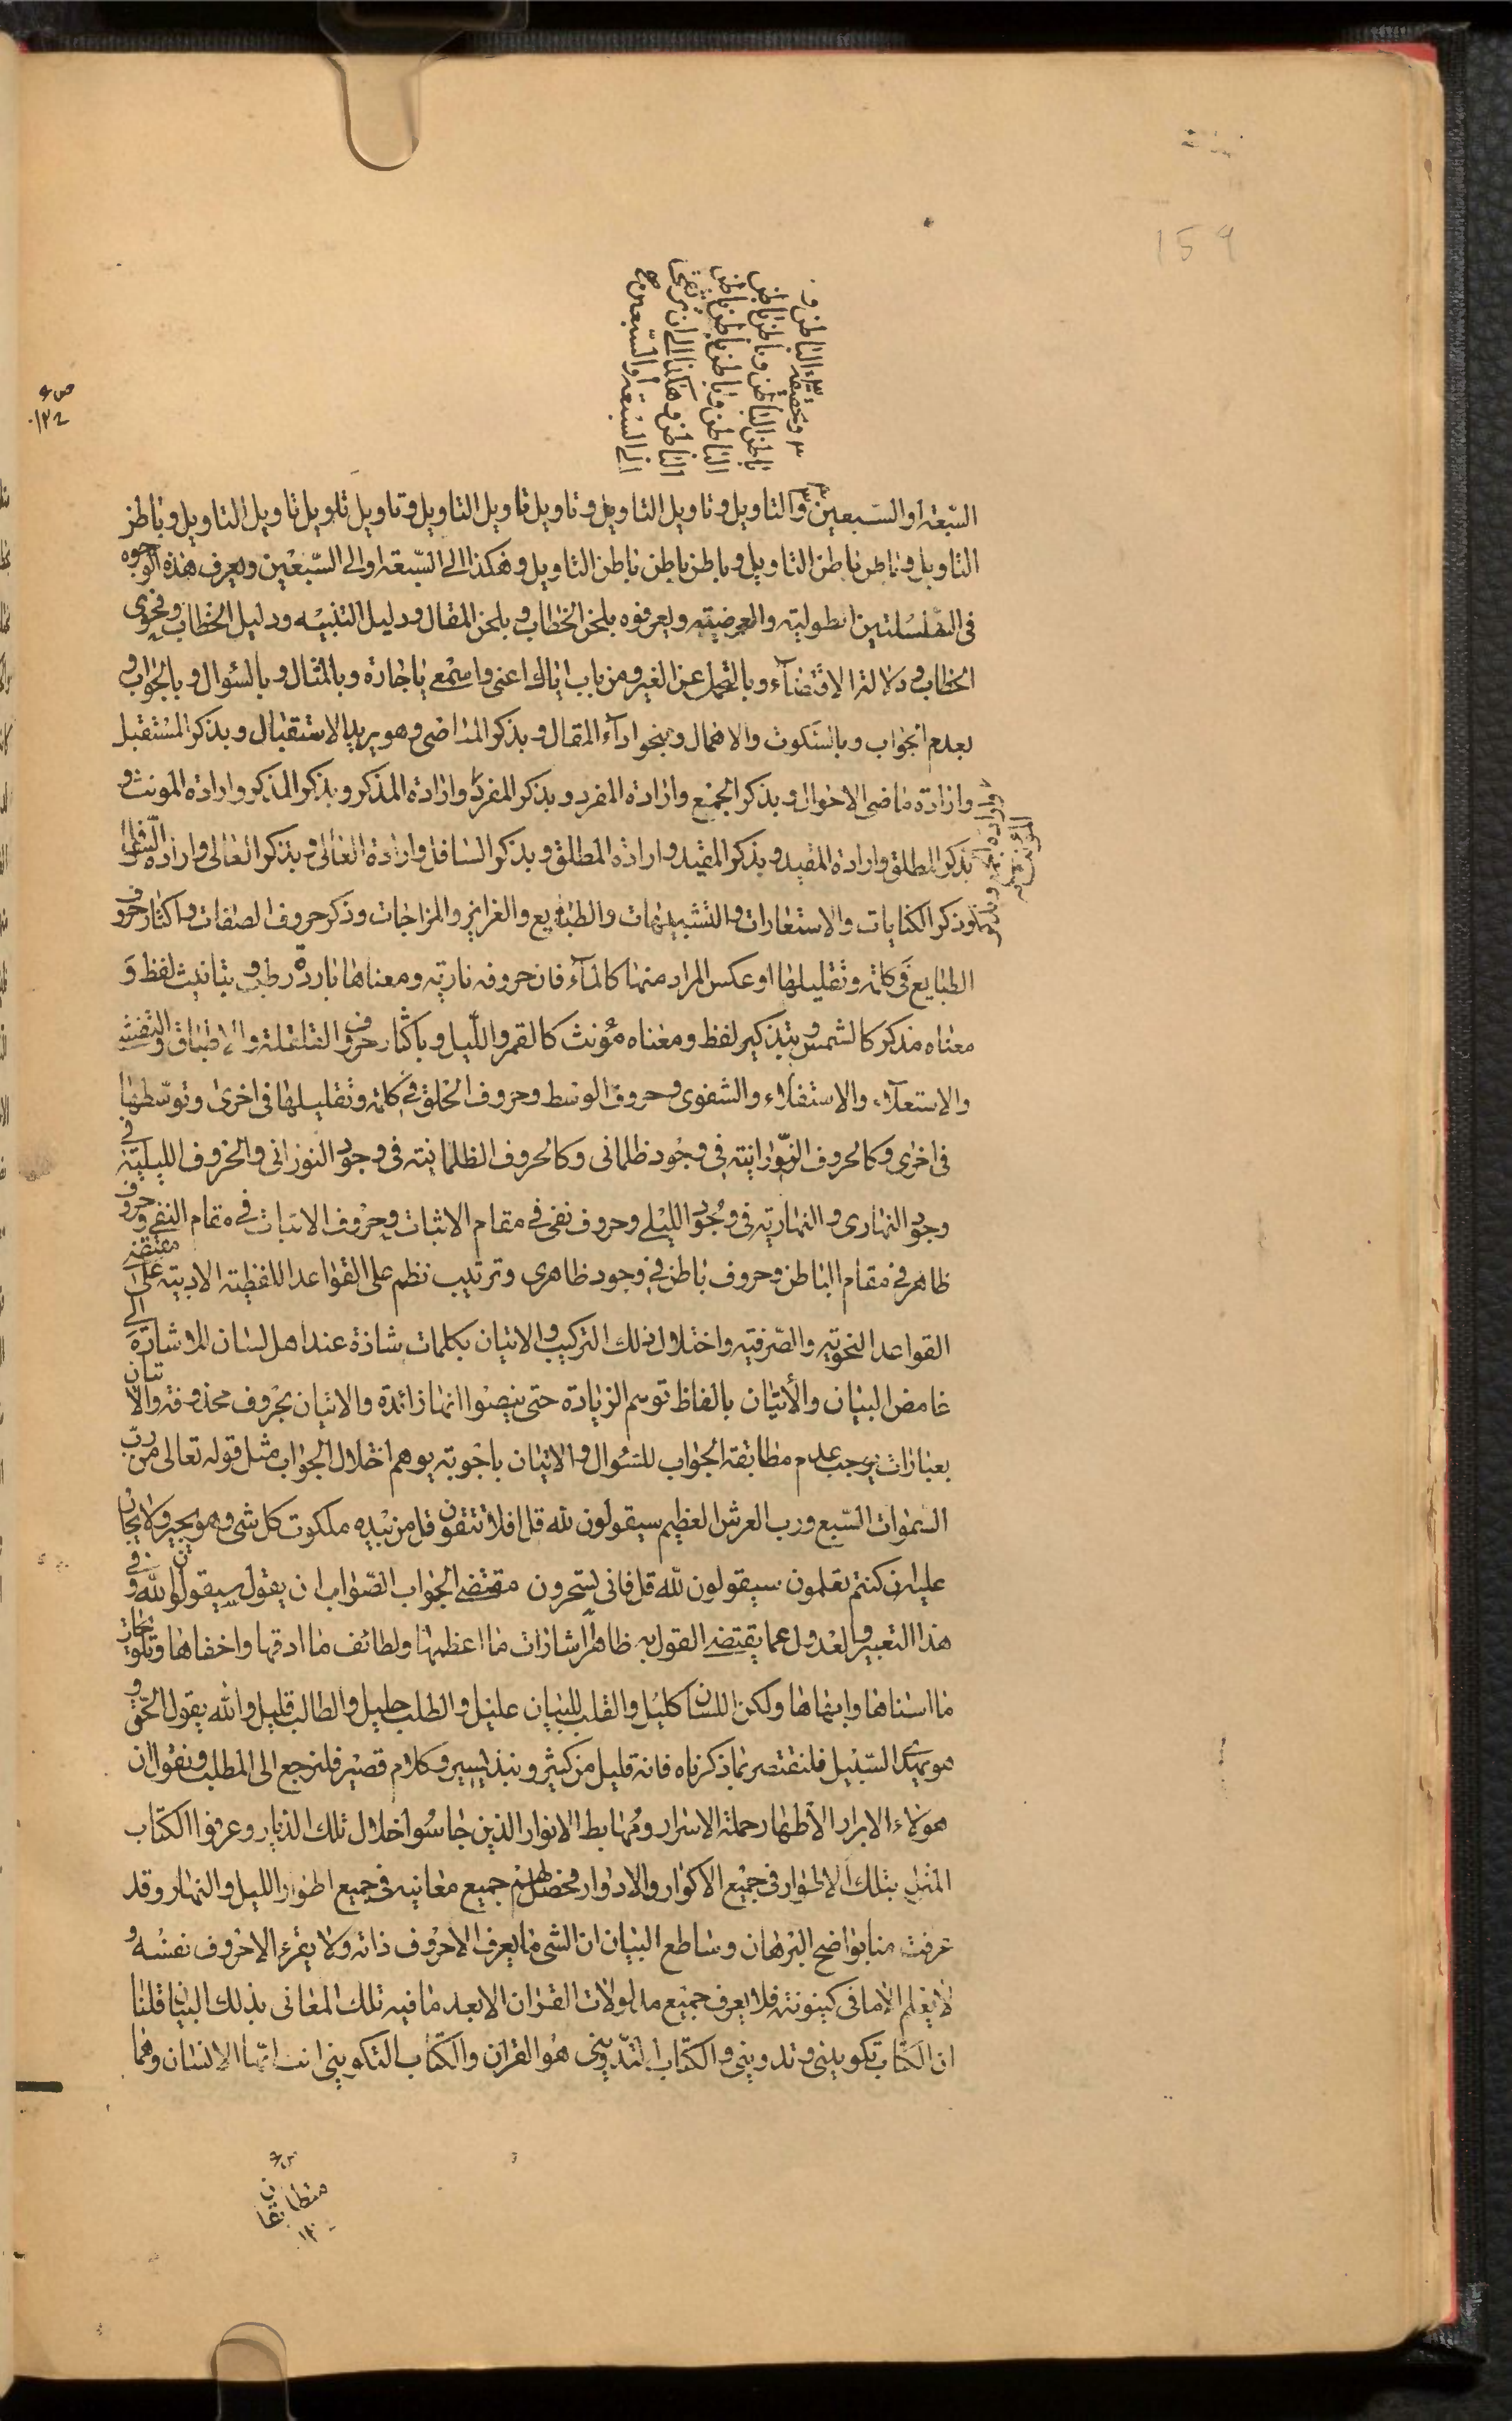 159
ص ع
١٣٤
٣ وبحقيقة الباطن و
باطن الباطن وباطن باطن
الباطن وباطن باطن باطن
الباطن وهكذا الى ان يرتقى
الى السبعة أو السبعين صح
السّبعة او السّبعين والتاويل وتاويل التاويل وتاويل تاويل التاويل وتاويل تاويل تاويل التاويل وباطن
التاويل وباطن باطن التاويل وباطن باطن باطن التاويل وهكذا الى السّبعة او الى السّبعين ويعرف هذه الوجوه
فى السّلسلتين الطولية والعرضيّة ويعرفوه بلحن الخطاب وبلحن المقال ودليل التنبيه ودليل الخطاب وفحوى
الخطاب ودلالة الاقتضآء وبالتحمل عن الغير ومن باب اياك اعنى واسمعى ياجارة وبالمثال وبالسّوال وبالجواب و
بعدم الجواب وبالسّكوت والاهمال وبنحو ادآء المقال وبذكر الماضى وهو يريد الاستقبال وبذكر المستقبل
وارادة ماضى الاحوال وبذكر الجمع وارادة المفرد وبذكر المفرد وارادة المذكر وبذكر المذكر وارادة المونث و
بذكر المطلق وارادة المقيد وبذكر المقيد وارادة المطلق وبذكر السّافل وارادة العالى وبذكر العالى وارادة السّافل
وذكر الكنايات والاستعارات والتشبيهات والطبايع والغرايز والمزاجات وذكر حروف الصفات واكثار حروف
الطبايع فى كلمة وتقليلها او عكس المراد منها كالمآء فان حروفه نارية ومعناها باردة رطبة وبتانيث لفظ وَ
معناه مذكر كالشمس وبتذكير لفظ ومعناه مؤنث كالقمر واللّيل وباكثار حروف القلقلة والاطباق والتفشى
والاستعلاء والاستفلاء والشفوى وحروف الوسط وحروف الحلق فى كلمة وتقليلها فى اخرى وتوسّطها
فى اخرى وكالحروف النّورانية فى وجود ظلمانى وكالحروف الظلمانية فى وجود النورانى والحروف الليلية فى
وجود النهارى والنهارية فى وجود الليلى وحروف نفى فى مقام الاثبات وحروف الاثبات فى مقام النفى وحروف
ظاهر فى مقام الباطن وحروف باطن فى وجود ظاهرى وترتيب نظم على القواعد اللفظية الادبية على مقتضى
القواعد النحوية والصّرفية واختلال ذلك التركيب والاتيان بكلمات شاذة عند اهل لسان للاشارة الى
غامض البيان والأتيان بالفاظ توهم الزيادة حتى ينصّوا انها زائدة والاتيان بحروف محذوفة والاتيان
بعبارات يوجب عدم مطابقة الجواب للسّوال والاتيان باجوبة يوهم اختلال الجواب مثل قوله تعالى من ربّ
السّموات السّبع ورب العرش العظيم سيقولون لله قل افلا تتقون قل من بيده ملكوت كل شى وهو يجير ولا يجار
عليه ان كنتم تعلمون سيقولون للّه قل فانى تسحرون مقتضى الجواب الصّواب ان يقول سيقولون الله وفى
هذا التعبير والعدول عما يقتضى القول به ظاهرا اشارات ما اعظمها ولطائف ما ادقها واخفاها وتلويحات
ما اسناها وابهاها ولكن اللسان كليل والقلب للبيان عليل والطلب جليل والطالب قليل والله يقول الحق و
هو يهدى السّبيل فلنقتصر بما ذكرناه فانه قليل من كثير ونبذ يسير وكلام قصير فلنرجع الى المطلب ونقول ان
هولاء الابرار الأطهار حملة الاسرار ومهابط الانوار الذين جاسُوا خلال تلك الديار وعرفوا الكتاب
المنزل بتلك الاطوار فى جميع الاكوار والادوار وحصل لهم جميع معانيه فى جميع اطوار الليل والنهار وقد
عرفت منا بواضح البرهان وساطع البيان ان الشى ما يعرف الا حروف ذاته ولا يقرء الا حروف نفسه و
لا يعلم الا ما فى كينونته فلا يعرف جميع مدلولات القران الا بعد ما فيه تلك المعانى بذلك البيان قلنا
ان الكتاب تكوينى وتدوينى والكتاب التدوينى هو القران والكتاب التكوينى انت ايّها الانسان وهما
متطابقان